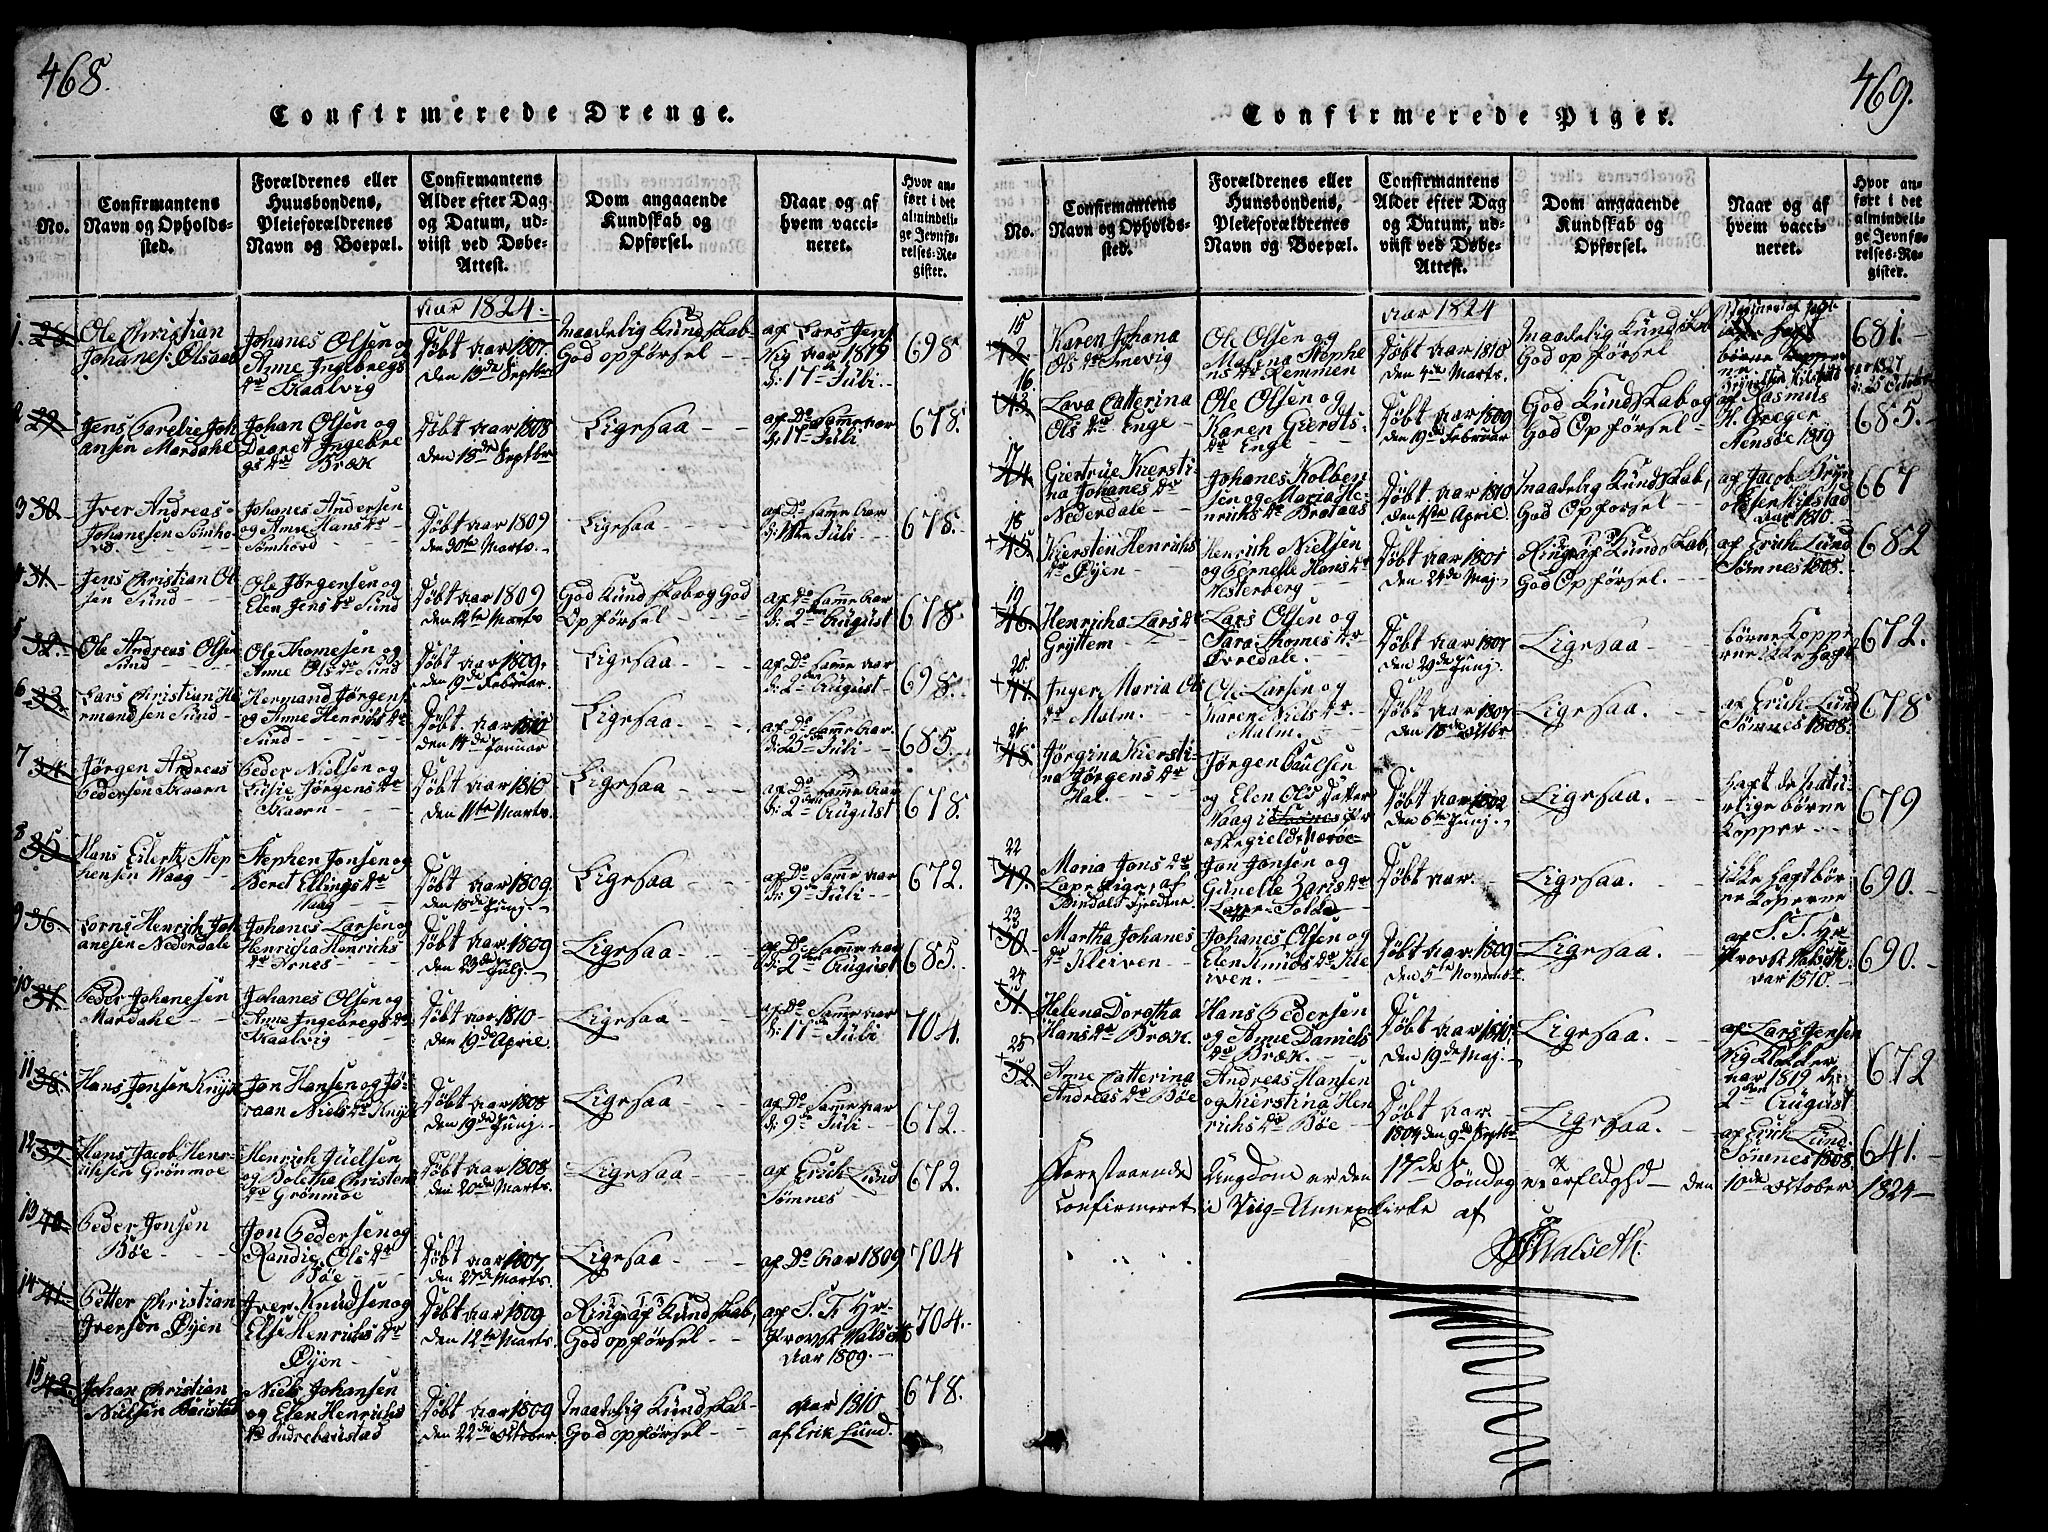 468.
Confirmerede Drenge.
No.
Confirmantens
Navn og Opholds-
sted.
Forældrenes eller
Huusbondens,
Pleieforældrenes
Navn og Boepæl.
Confirmantens
Alder efter Dag
og Datum, ud-
viist ved Døbe-
Attest.
Dom angaaende
Kundskab og
Opførsel.
Naar og af
hvem vacci-
neret.
Hvor an-
ført i det
almindeli-
ge Jevnfø-
relses-Re-
gister.
Aar 1824.
1. 28
Ole Christian
Johanes Olsen og
Anne Ingebregs
dr Kaalvig
Døbt aar 1807.
den 13de Septbr
Maadelig Kundskab
God opførsel
af Lars Jens
Vig aar 1819
d: 17de Juli
698
2 29
Jens Parelie Joh
ansen Mardahl
Johan Olsen og
Daaret Ingebre
gs dr Bræk
Døbt aar 1808
den 18de Septbr
Ligesaa
af Do Samme aar
d: 17de Juli
678.
3 30
Iver Andreas
Johanesen Somho
vd.
Johanes Andersen
og Anne Hans dr
Somhovd
Døbt aar 1809
den 30te Marts.
Ligesaa
af Do samme aar
Juli
678.
4 31
Jens Christian Ol
sen Sund
Ole Jørgensen og
Elen Jens dr Sund
Døbt aar 1809
den 12te Marts
God Kundskab og God
Opførsel
af Do samme aar
d: 2den August
678.
5 32
Ole Andreas Olsen
Sund
Ole Thomesen og
Anne Ols dr Sund
Døbt aar 1809.
den 19de Februar.
Ligesaa
af Do Samme aar
d: 2den August
698.
6 33
Lars Christian He
rmandsen Sund
Hermand Jørgens
og Anne Henrichs dr
Sund
Døbt aar 1810
den 14de Januar
Ligesaa.
af Do Samme aar.
Juli
685.
7 34
Jørgen Andreas
Pedersen Skaarn
Peder Nielsen og
Lusie Jørgens dr
Skaarn
Døbt aar 1810
den 11te Marts.
Ligesaa
af Do Samme aar
d: 2den August
678.
8 35
Hans Eilert Step
hensen Vaag
Stephen Jonsen og
Beret Ellings dr
Vaag
Døbt aar 1809.
den 18de Junj.
Ligesaa
af Do Samme aar
d: 9de Juli
672.
9 36
Lorns Henrich Joh
anesen Nederdale
Johanes Larsen og
Henrichia Henrichs
dr Arnes
Døbt aar 1809
den 23de Julj.
Ligesaa
af Do Samme aar
d: 2den August
685.
10 37
Peder Johanesen
Mardahl
Johanes Olsen og
Anne Ingebregs dr
Kaalvig
Døbt aar 1810
den 19de April.
Ligesaa
af Do Samme aar
d: 17de Juli
704.
11 38
Hans Jonsen Knyt
Jon Hansen og Jø
raan Niels dr Knyt
Døbt aar 1808
den 19de Junj.
Ligesaa
af Do Samme aar
d: 9de Juli
672.
12 39
Hans Jacob Henr
Grønmoe
Henrich Juelsen
og Boletha Christens
dr Grønmoe
Døbt aar 1808
den 20de Marts.
Ligesaa
af Erich Lund
Sømnes
672.
13 40
Peder Jonsen
Bøe
Jon Pedersen og
Randie Ols dr
Bøe
Døbt aar 1807
den 27de Marts.
Ligesaa
af Do Aar 1809
704
14 41
Petter Christian
Iversen Øyen
Iver Knudsen og
Else Henrichs dr
Øyen
Døbt aar 1809
den 12te Marts
Ringe af Kundskab,
God opførsel
af S. T. Hr
Provst Valseth
Aar 1809.
704.
15 42
Johan Christian
Nielsen Baustad
Niels Johansen
og Elen Henrichs
dr Indrebaustad
Døbt aar 1809
den 22de October
Maadelig Kundskab
God opførsel
Aar 1810
af Erik Lund.
678.
469.
Confirmerede Piger.
No.
Confirmantens
Navn og Opholds-
sted.
Forældrenes eller
Huusbondens,
Pleieforældrenes
Navn og Boepæl.
Confirmantens
Alder efter Dag
og Datum, ud-
viist ved Døbe-
Attest.
Dom angaaende
Kundskab og
Opførsel.
Naar og af
hvem vacci-
neret.
Hvor an-
ført i det
almindeli-
ge Jevnfø-
relses-Re-
gister.
Aar 1824
15 42
Karen Johana
Ols dr
Ole Olsen og
Malena Stephe
ns dr Remmen
Døbt aar 1810
den 4de Marts.
Maadelig Kundskab
God opførsel
681.
16. 43
Lava Catterina
Ols dr Enge
Ole Olsen og
Karen Gierdts
dr Enge
Døbt aar 1809
den 19de Februar
God Kundskab og
God Opførsel
af Rasmus
H. Greger
1819
685.
17 44
Giertrue Kiersti
na Johanes dr
Nederdale
Johanes Kolben
sen og Maria He
nrichs dr Brataas
Døbt. aar 1810
den 1ste April.
Maadelig Kundskab,
God Opførsel
af Jacob Bryn
aar 1810.
667
18 45
Kiersten Henrichs
dr Øyen
Henrich Nielsen
og Pernelle Hans dr
Vesterberg
Døbt aar 1801
den 24de Maj
Ringe af Kundskab,
God Opførsel.
af Erich Lund
Sømnes 1808.
682
19 46
Henricha Lars dr
Gryttem
Lars Olsen og
Sara Thomes dr
Døbt aar 1807
den 29de Junj
Ligesaa
børne Koppe
rne Ikke haft
672.
20. 47
Inger Maria Ols
dr Malm.
Ole Larsen og
Karen Niels dr
Malm.
Døbt aar 1807
den 18de Octbr
Ligesaa.
af Erich Lund
Sømnes 1808.
678
21 48
Jørgina Kiersti
na Jørgens dr
Hal.
Jørgen Paulsen
og Elen Ols datter
Vaag
Døbt aar 1802
den 6te Junj.
Ligesaa.
haft de natu
rlige børne
Kopper
679
22 49
Maria Jons dr
Lape Pige, af
Bindals Fjeldene
Jon Jonsen og
Gunelle Zaris dr
Lappe Folk
Døbt aar
Ligesaa.
ikke haft bør
ne Koperne
690.
23 50
Martha Johanes
dr Kleiven
Johanes Olsen og
Elen Knuds dr Kle
iven.
Døbt aar 1809
den 5te Novembr
Ligesaa.
af S. T. Hr
Provst Valseth
aar 1810.
690.
24 51
Helena Dorotha
Hans dr Bræk
Hans Pedersen
og Anne Daniels
dr Bræk.
Døbt aar 1810
den 19de Maj
Ligesaa.
af Lars Jensen
Vig Klokker
aar 1819 d:
2den August
672
25 52
Anne Catterina
Andreas dr Bøe
Andreas Hansen
og Kierstina Hen
richs dr Bøe
Døbt aar
1804 den 9de Septbr
Ligesaa.
af Erich Lund
Sømnes 1808.
641.
Forestaaende Ungdom er den 17de Søndag den 10de October 1824
Confirmeret i Viig-Annexkirke af
Walseth.